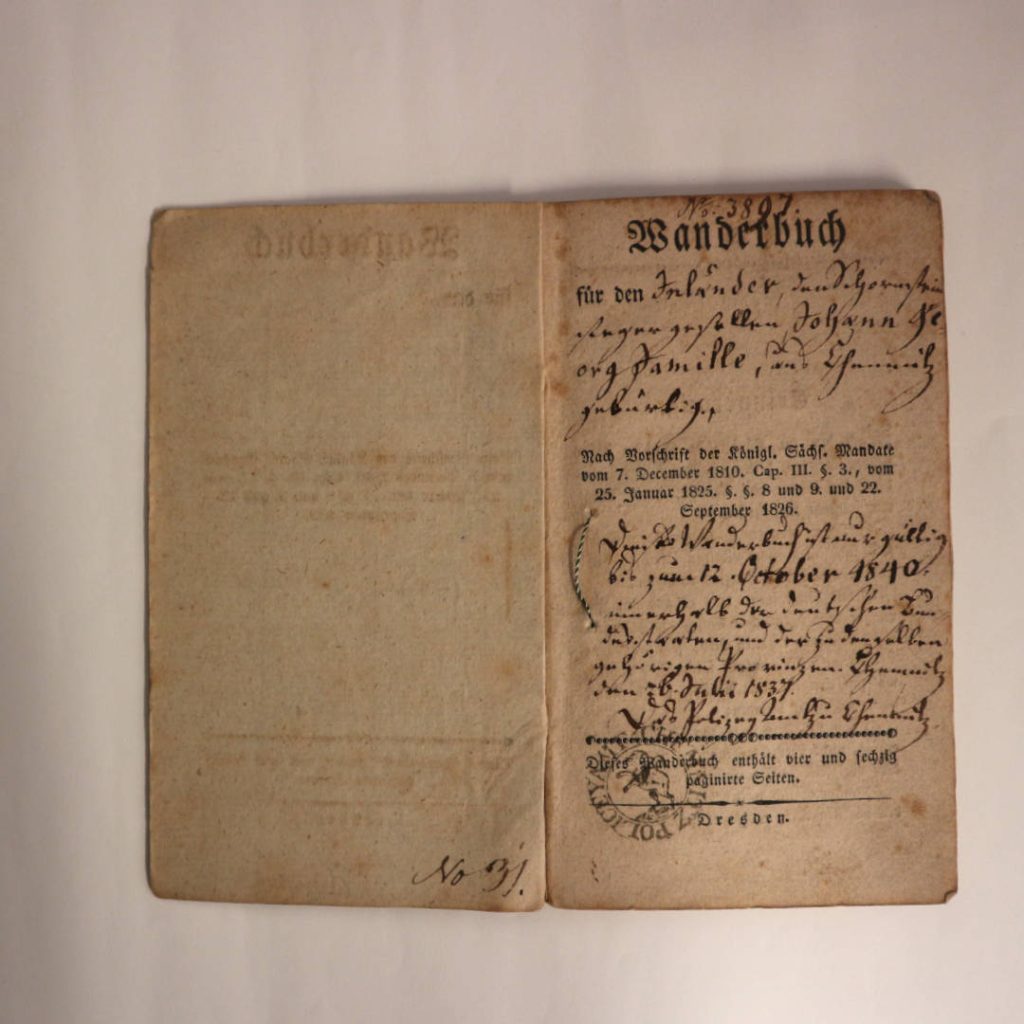 No 31.
No. 3897
Wanderbuch
für den Inländer, den Schornstein
fegergesellen Johann Ge
org Familke, aus Chemnitz
gebürtig.,
Nach Vorschrift der Königl. Sächs. Mandate
vom 7. December 1810. Cap. III. §. 3., vom
25. Januar 1825. §. §. 8 und 9. und 22.
September 1826.
Dieses Wanderbuch ist nur gültig
bis zum 12. October 1840.
innerhalb der deutschen Bun
desstaaten, und der zu denselben
gehörigen Provinzen. Chemnitz
den 26. Julii 1837.
Das Polizey Amt zu Chemnitz
Dieses Wanderbuch enthält vier und sechzig
paginirte Seiten.
Dresden.